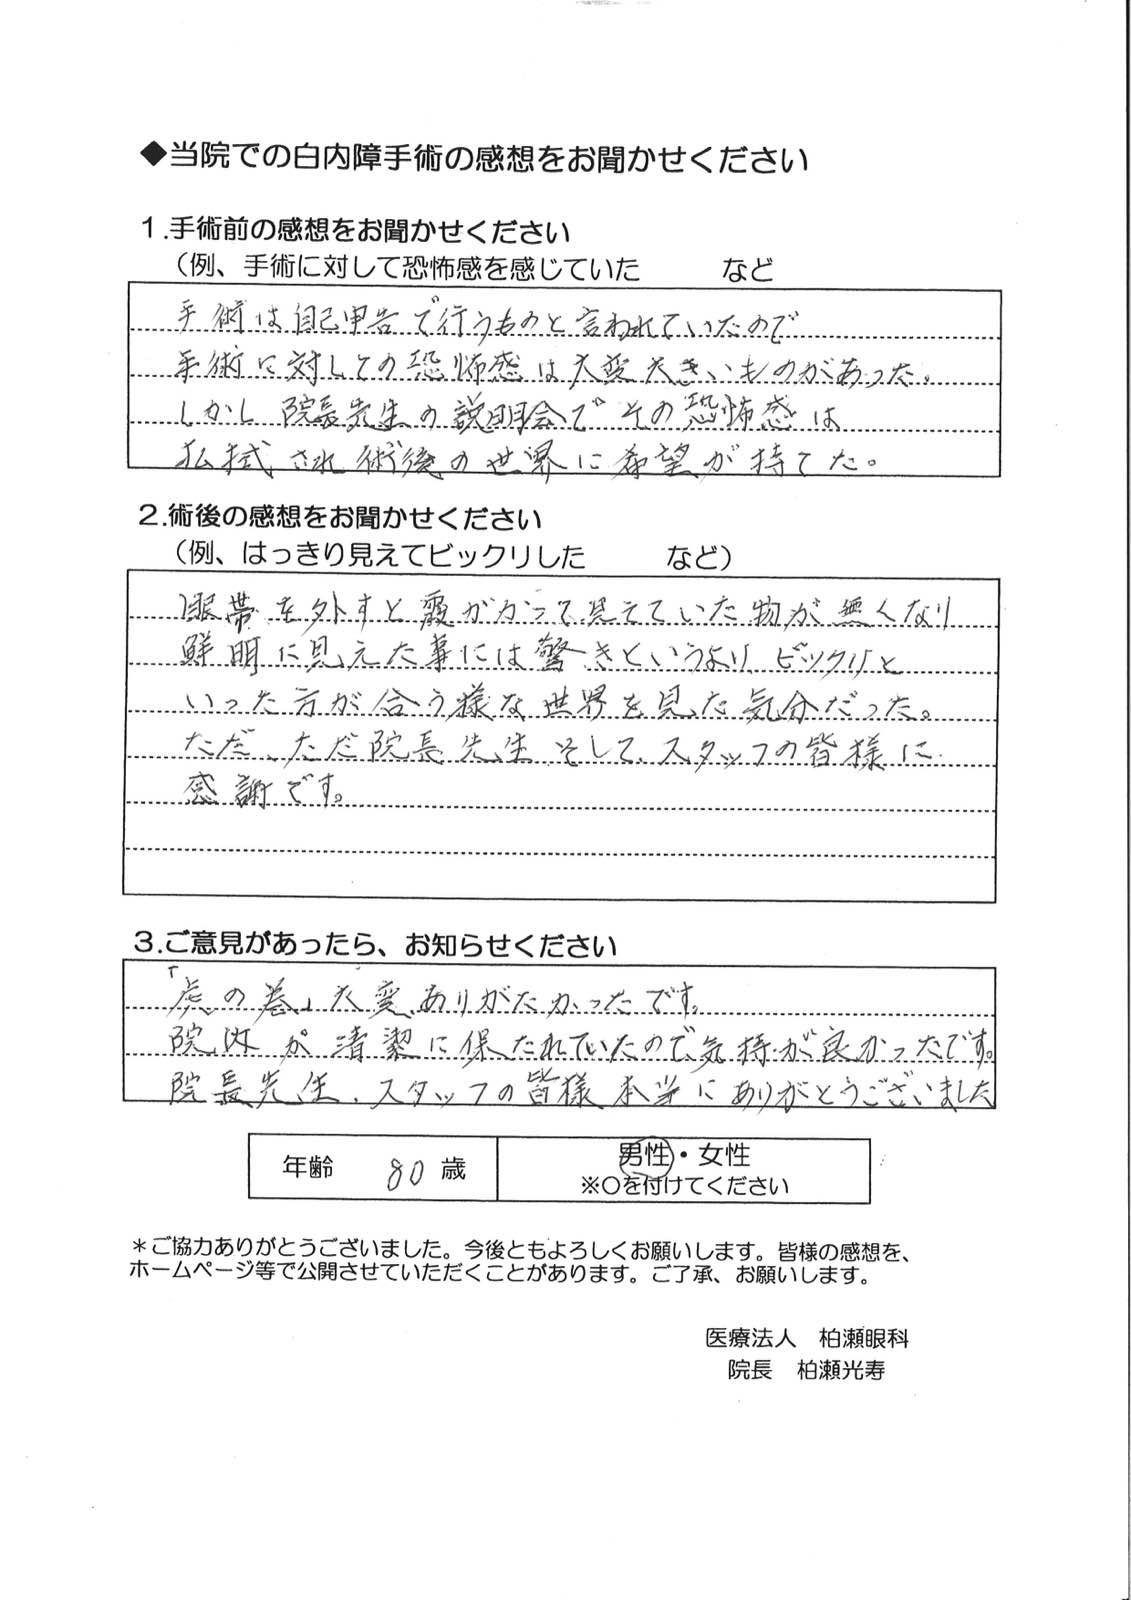 ◆当院での白内障手術の感想をお聞かせください
1.手術前の感想をお聞かせください
(例、手術に対して恐怖感を感じていた　　　など
手術は自己申告で行うものと言われていたので
手術に対しての恐怖感は大変大きいものがあった。
しかし院長先生の説明会でその恐怖感は
払拭され術後の世界に希望が持てた。
2.術後の感想をお聞かせください
(例、はっきり見えてビックリした　　　など)
眼帯を外すと霞がかって見えていた物が無くなり
鮮明に見えた事には驚きというよりビックリと
いった方が合う様な世界を見た気分だった。
ただ、ただ院長先生そしてスタッフの皆様に
感謝です。
3.ご意見があったら、お知らせください
「虎の巻」大変ありがたかったです。
院内が清潔に保たれていたので、気持が良かったです。
院長先生、スタッフの皆様本当にありがとうございました
年齢　80歳　男性・女性
※○を付けてください
＊ご協力ありがとうございました。今後ともよろしくお願いします。皆様の感想を、
ホームページ等で公開させていただくことがあります。ご了承、お願いします。
医療法人　柏瀬眼科
院長　柏瀬光寿